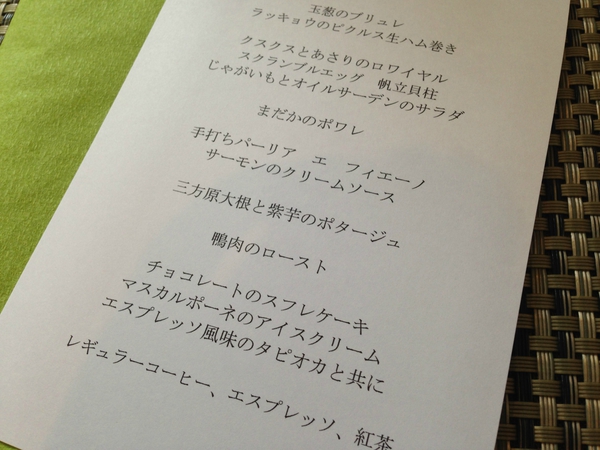 玉葱のブリュレ
ラッキョウのピクルス生ハム巻き
クスクスとあさりのロワイヤル
スクランブルエッグ　帆立貝柱
じゃがいもとオイルサーデンのサラダ
まだかのポワレ
手打ちパーリア　エ　フィエーノ
サーモンのクリームソース
三方原大根と紫芋のポタージュ
鴨肉のロースト
チョコレートのスフレケーキ
マスカルポーネのアイスクリーム
エスプレッソ風味のタピオカと共に
レギュラーコーヒー、エスプレッソ、紅茶